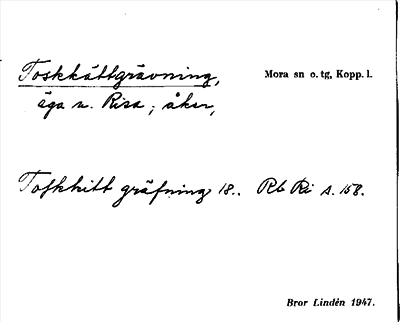 Toskkättgrävning, Mora sn o. tg, Kopp. l.
äga n. Risa; åker,
Tofkkitt gräfning 18.. Rb Ri s. 158.
Bror Lindén 1947.